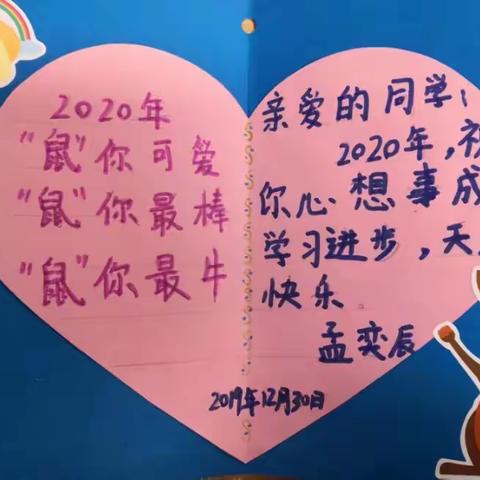 2020年
“鼠”你可爱
“鼠”你最棒
“鼠”你最牛
亲爱的同学：
2020年，祝
你心想事成
学习进步，天
快乐
孟奕辰
2019年12月30日